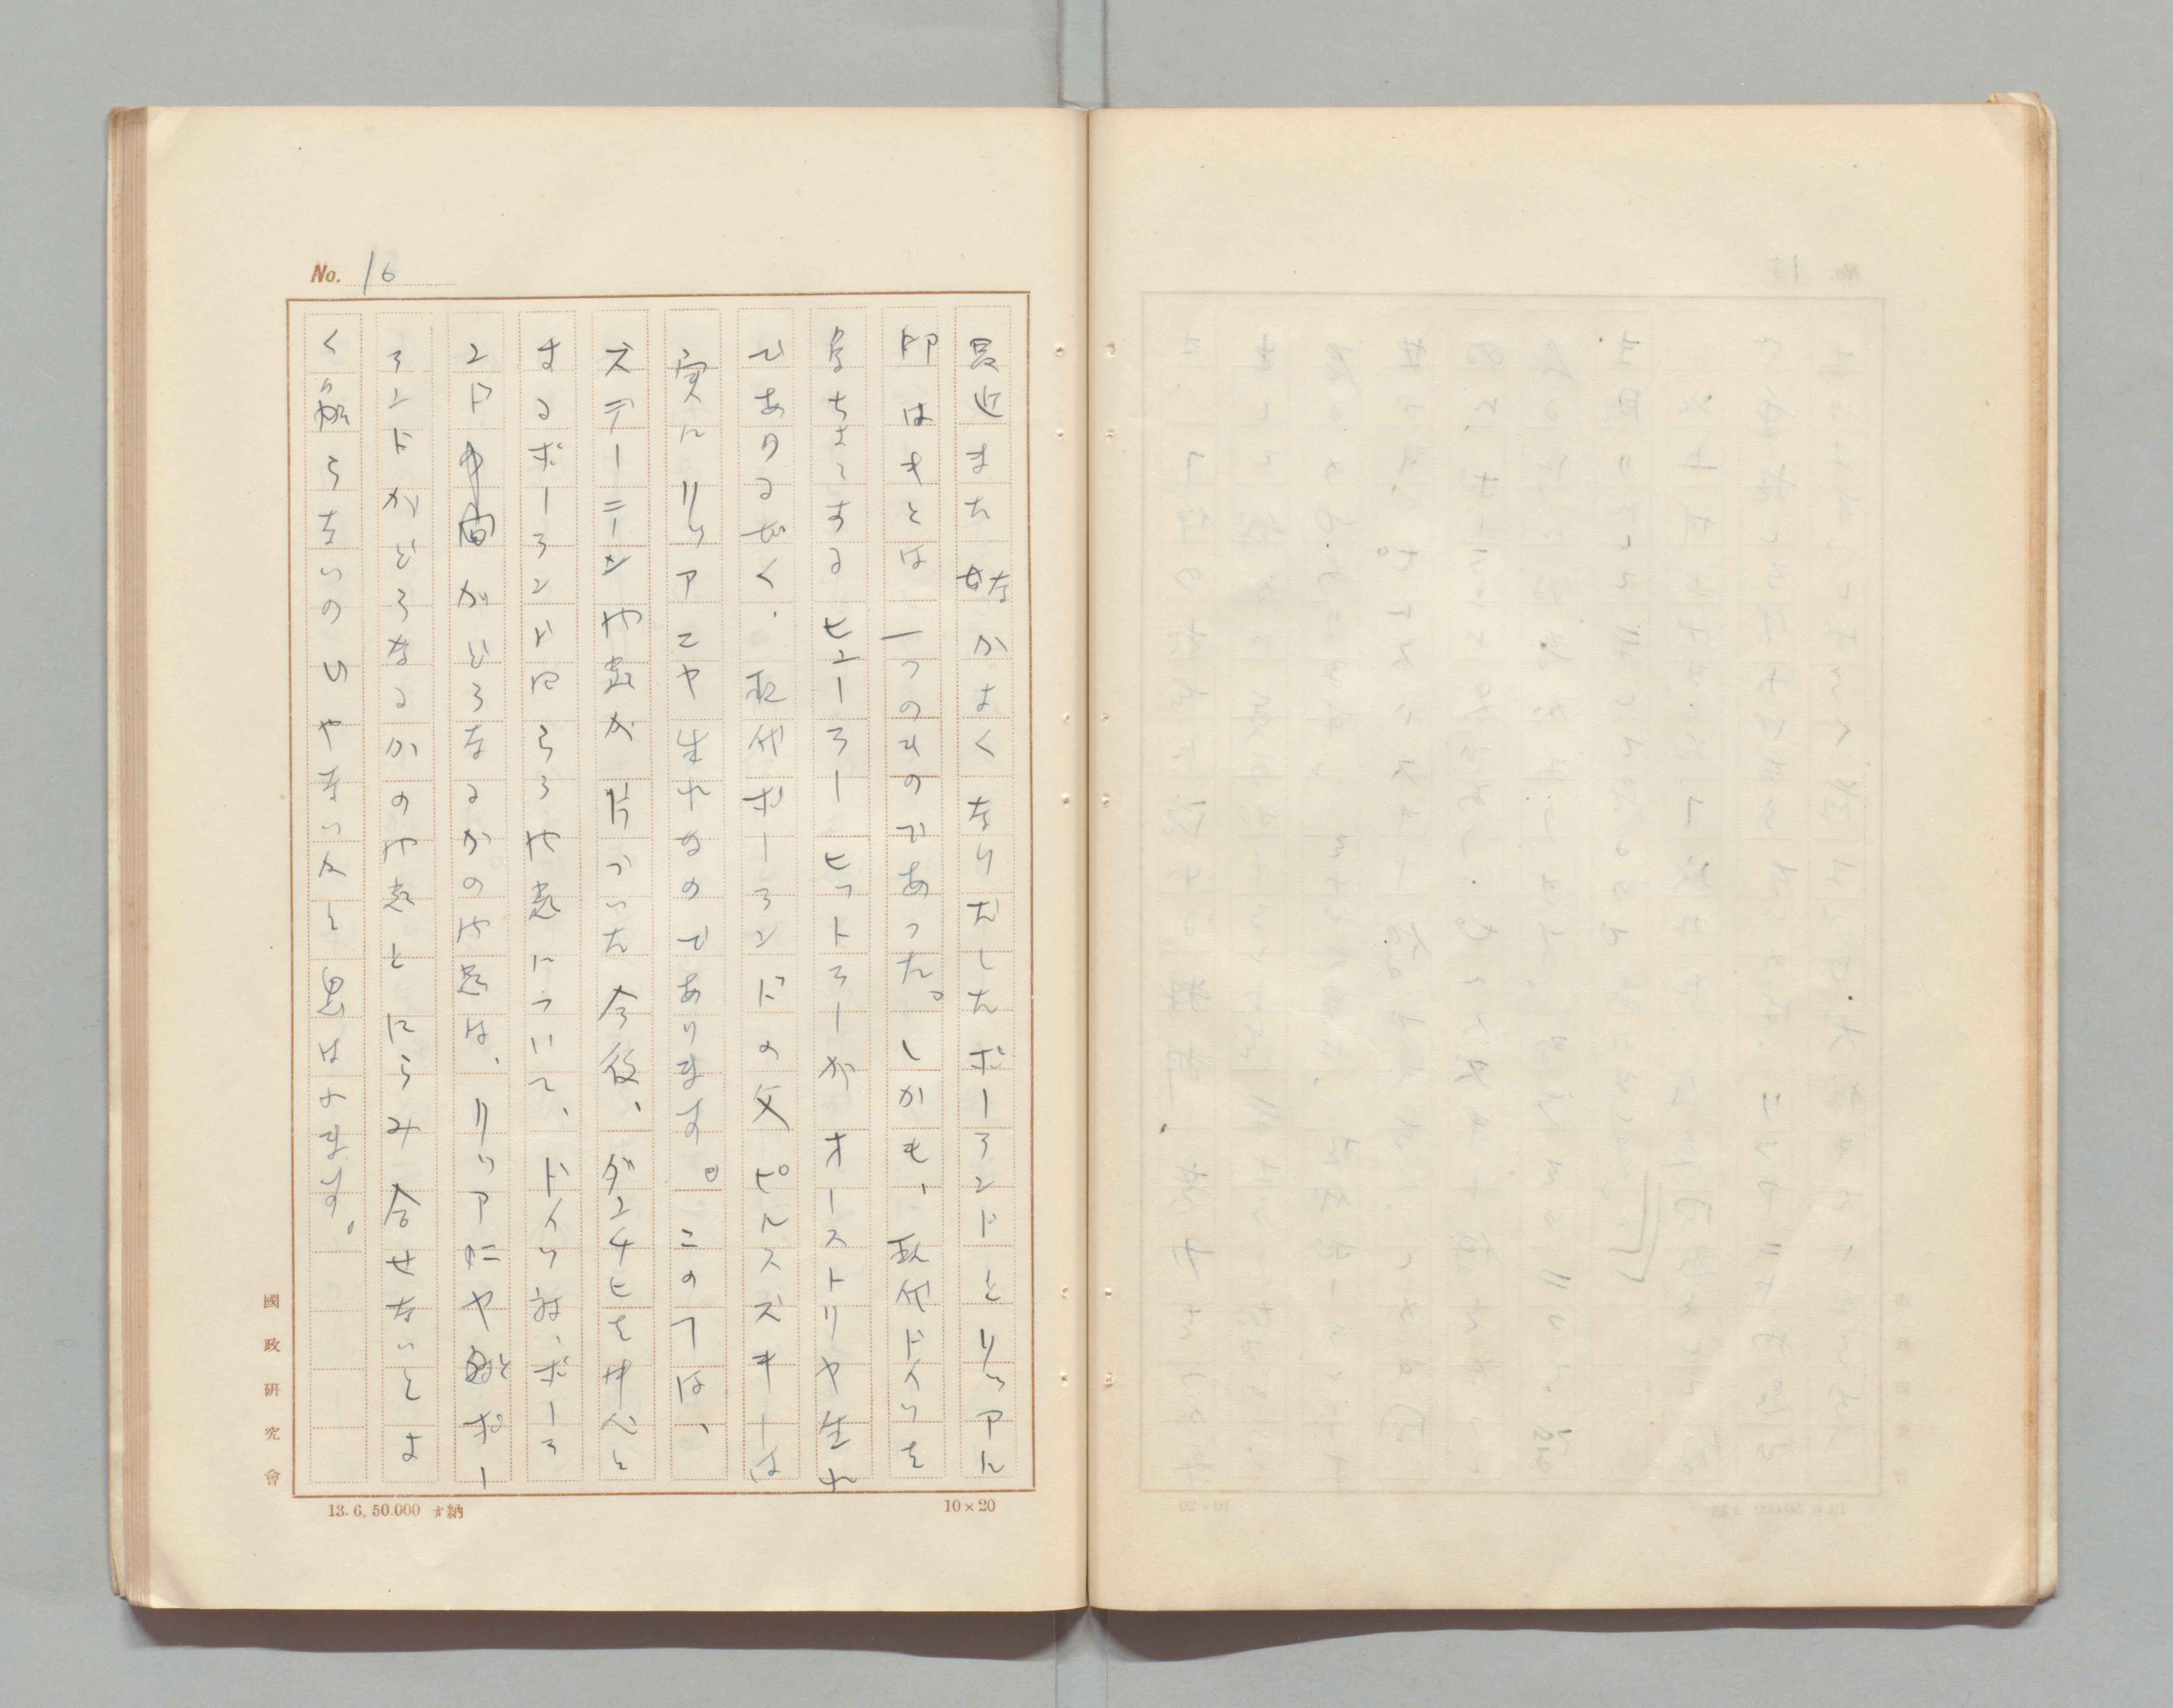 No. 16
最近またなかよくなりだしたポーランドとリツアニ
はもとは一つのものであった。しかも、現代ドイツを
するヒューラーヒットラーがオーストリヤ生れ
であるごとく、現代ポーランドの父ピルスズキーは
実にリツアニヤ生れなのであります。このヿは、
ズデーテン問題が片づいた今後、ダンチヒを中心と
するポーランド回らう問題について、ドイツ対、ポーラ
ンド中間がどうなるかの問題は、リツアニヤとポー
ランドがどうなるかの問題とにらみ合せないとよ
く解らないのぢやないかと思はれます。
國政研究會
13. 6. 50.000 納
10×20